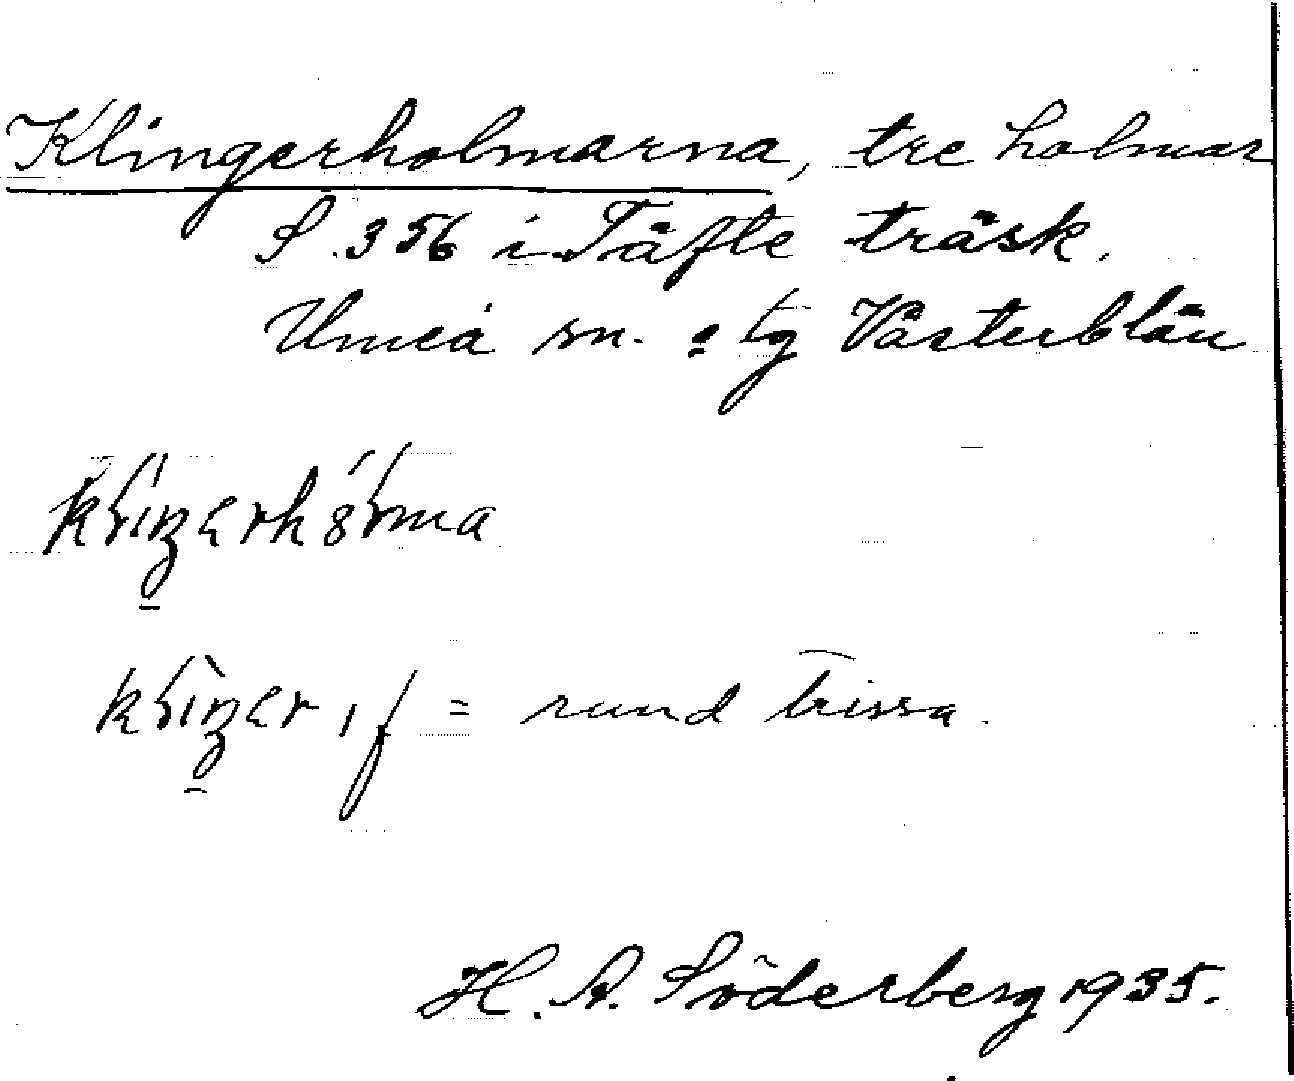 Klingerholmarna, tre holmar
S. 356 i Täfte träsk.
Umeå sn. o tg Västerblän
= rund trissa.
H. A. Söderberg 1935.